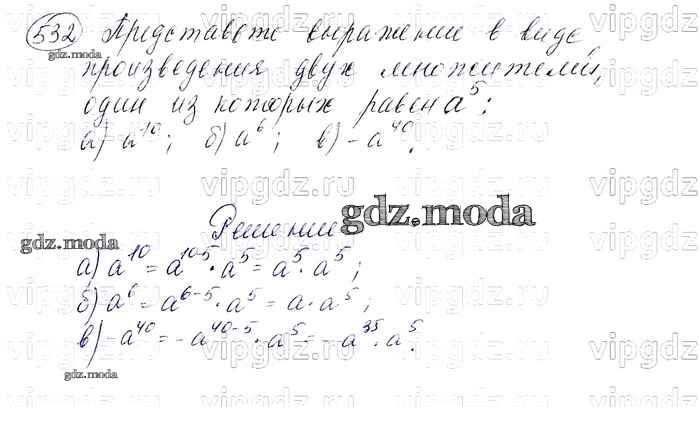 532 Представьте выражение в виде
произведения двух множителей,
один из которых равен a⁵:
а) a¹⁰; б) a⁶; в) -a⁴⁰.
Решение
gdz.moda
gdz.moda
а) a¹⁰ = a¹⁰⁻⁵ · a⁵ = a⁵ · a⁵;
б) a⁶ = a⁶⁻⁵ · a⁵ = a · a⁵;
в) -a⁴⁰ = -a⁴⁰⁻⁵ · a⁵ = -a³⁵ · a⁵.
gdz.moda
gdz.moda
vipgdz